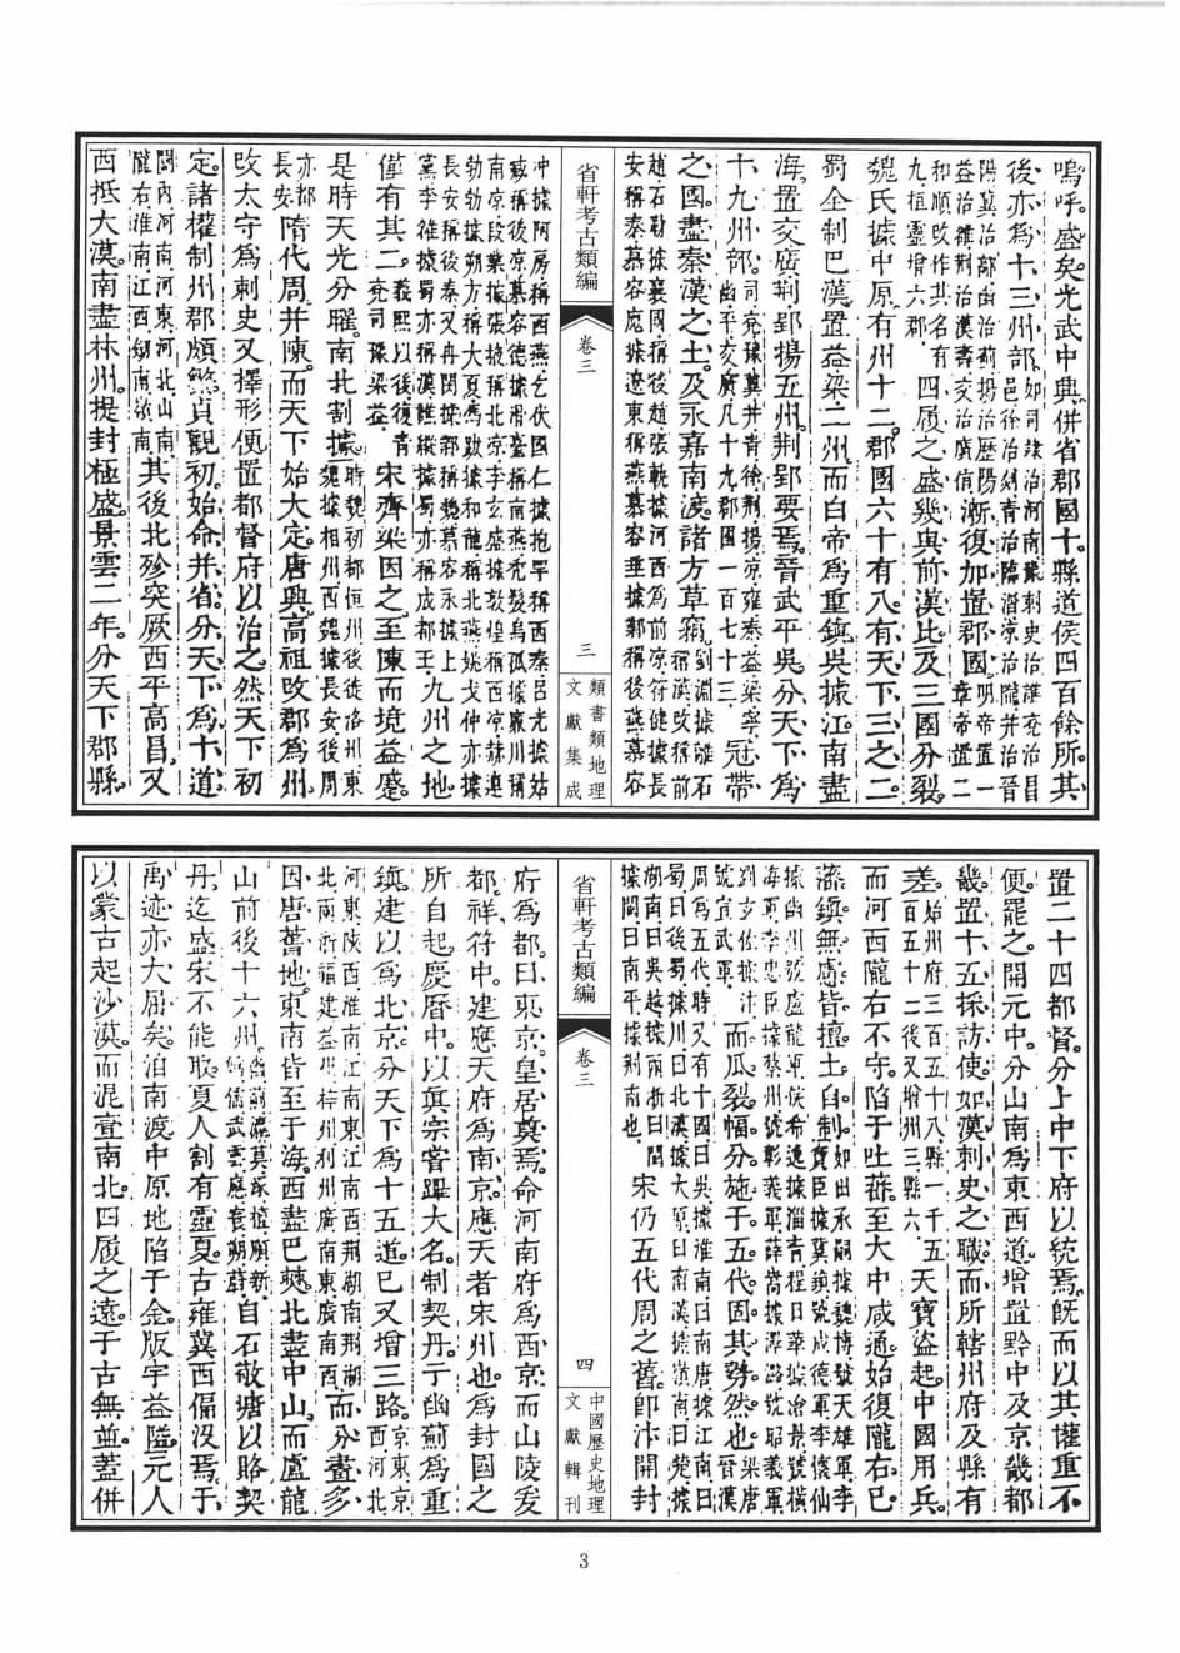 嗚呼盛矣光武中興併省郡國十縣道侯四百餘所其
後亦爲十三州部如司隸治河南豫刺史治譙兗治昌
邑徐治郯青治臨淄涼治隴并治晉
陽冀治鄗幽治薊揚治歷陽
益治雒荆治漢壽交治廣信漸復加置郡國明帝置一
章帝置二
和順改作其名有
九桓靈增六郡四履之盛幾與前漢比及三國分裂
魏氏據中原有州十二郡國六十有八有天下三之二
蜀全制巴漢置益梁二州而白帝爲重鎮吳據江南盡
海置交廣荆郢揚五州荆郢要焉晉武平吳分天下爲
十九州部司兗豫冀并青徐荆揚涼雍秦益梁寧
幽平交廣凡十九郡國一百七十三冠帶
之國盡秦漢之土及永嘉南渡諸方草竊劉淵據離石
稱漢改稱前
趙石勒據襄國稱後趙張軌據河西爲前涼苻健據長
安稱秦慕容廆據遼東稱燕慕容垂據鄴稱後燕慕容
省軒考古類編
卷三
三
類書類地理
文獻集成
冲據阿房稱西燕乞伏國仁據抱罕稱西秦呂光據姑
臧稱後涼慕容德據滑臺稱南燕禿髮烏孤據廉川稱
南涼段業據張掖稱北涼李玄盛據敦煌稱西涼赫連
勃勃據朔方稱大夏馮跋據和龍稱北燕姚弋仲亦據
長安稱後秦又冉閔據鄴稱魏慕容永據上
黨李雄據蜀亦稱漢譙縱據蜀亦稱成都王九州之地
僅有其二義熙以後復青
兗司豫梁益宋齊梁因之至陳而境益蹙
是時天光分曜南北割據時魏初都恒州後徙洛州東
魏據相州西魏據長安後周
亦都
長安隋代周并陳而天下始大定唐興高祖改郡爲州
改太守爲刺史又擇形便置都督府以治之然天下初
定諸權制州郡頗繁貞觀初始命并省分天下爲十道
關內河南河東河北山南
隴右淮南江西劍南嶺南其後北殄突厥西平高昌又
西抵大漠南盡林州提封極盛景雲二年分天下郡縣
置二十四都督分上中下府以統焉旣而以其權重不
便罷之開元中分山南爲東西道增置黔中及京畿都
畿置十五採訪使如漢刺史之職而所轄州府及縣有
差始州府三百五十八縣一千五
百五十二後又增州三縣六天寶盜起中國用兵
而河西隴右不守陷于吐蕃至大中咸通始復隴右已
藩鎮無慮皆擅土自制如田承嗣據魏博號天雄軍李
寶臣據冀鎮號成德軍李懷仙
據幽州號盧龍軍侯希逸據淄青程日華據滄景號橫
海軍李忠臣據蔡州號彰義軍薛嵩據澤潞號昭義軍
劉玄佐據汴
號宣武軍而瓜裂幅分施于五代固其勢然也梁唐
晉漢
周爲五代時又有十國曰吳據淮南曰南唐據江南曰
蜀曰後蜀據川曰北漢據太原曰南漢據嶺南曰楚據
湖南曰吳越據兩浙曰閩
據閩曰南平據荆南也宋仍五代周之舊卽汴開封
省軒考古類編
卷三
四
中國歷史地理
文獻輯刊
府爲都曰東京皇居奠焉命河南府爲西京而山陵爰
都祥符中建應天府爲南京應天者宋州也爲封國之
所自起慶曆中以眞宗嘗蹕大名制契丹于幽薊爲重
鎮建以爲北京分天下爲十五道已又增三路京東京
西河北
河東陝西淮南江南東江南西荆湖南荆湖
北兩浙福建益州梓州利州廣南東廣南西而分畫多
因唐舊地東南皆至于海西盡巴僰北盡中山而盧龍
山前後十六州幽薊瀛莫涿檀順新
嬀儒武雲應寰朔蔚自石敬塘以賂契
丹迄盛宋不能取夏人割有靈夏古雍冀西偏沒焉于
禹迹亦大屈矣洎南渡中原地陷于金版宇益隘元人
以蒙古起沙漠而混壹南北四履之遠于古無並蓋併
3